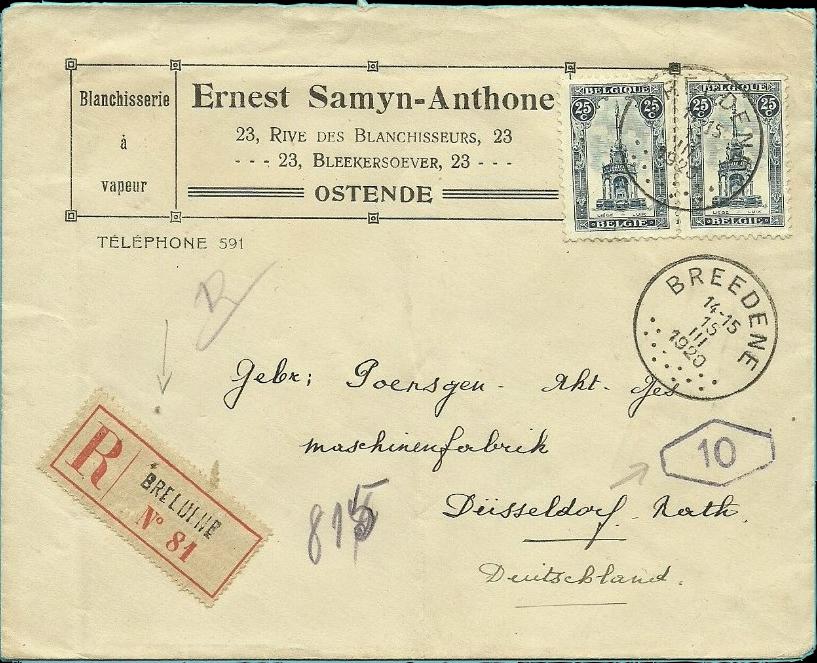 Blanchisserie
à
vapeur
Ernest Samyn-Anthone
23, RIVE DES BLANCHISSEURS, 23
--- 23, BLEEKERSOEVER, 23 ---
OSTENDE
TÉLÉPHONE 591
BELGIQUE BELGIQUE
25 C 25 C 25 C 25 C
LIÉGE LUIK LIÉGE LUIK
BELGIË BELGIË
BREEDENE
14-15
15
III
1920
R
Gebr; Poensgen - Akt - Ges
maschinenfabrik
10
Düsseldorf - Rath.
Deutschland.
R
N° 81
815